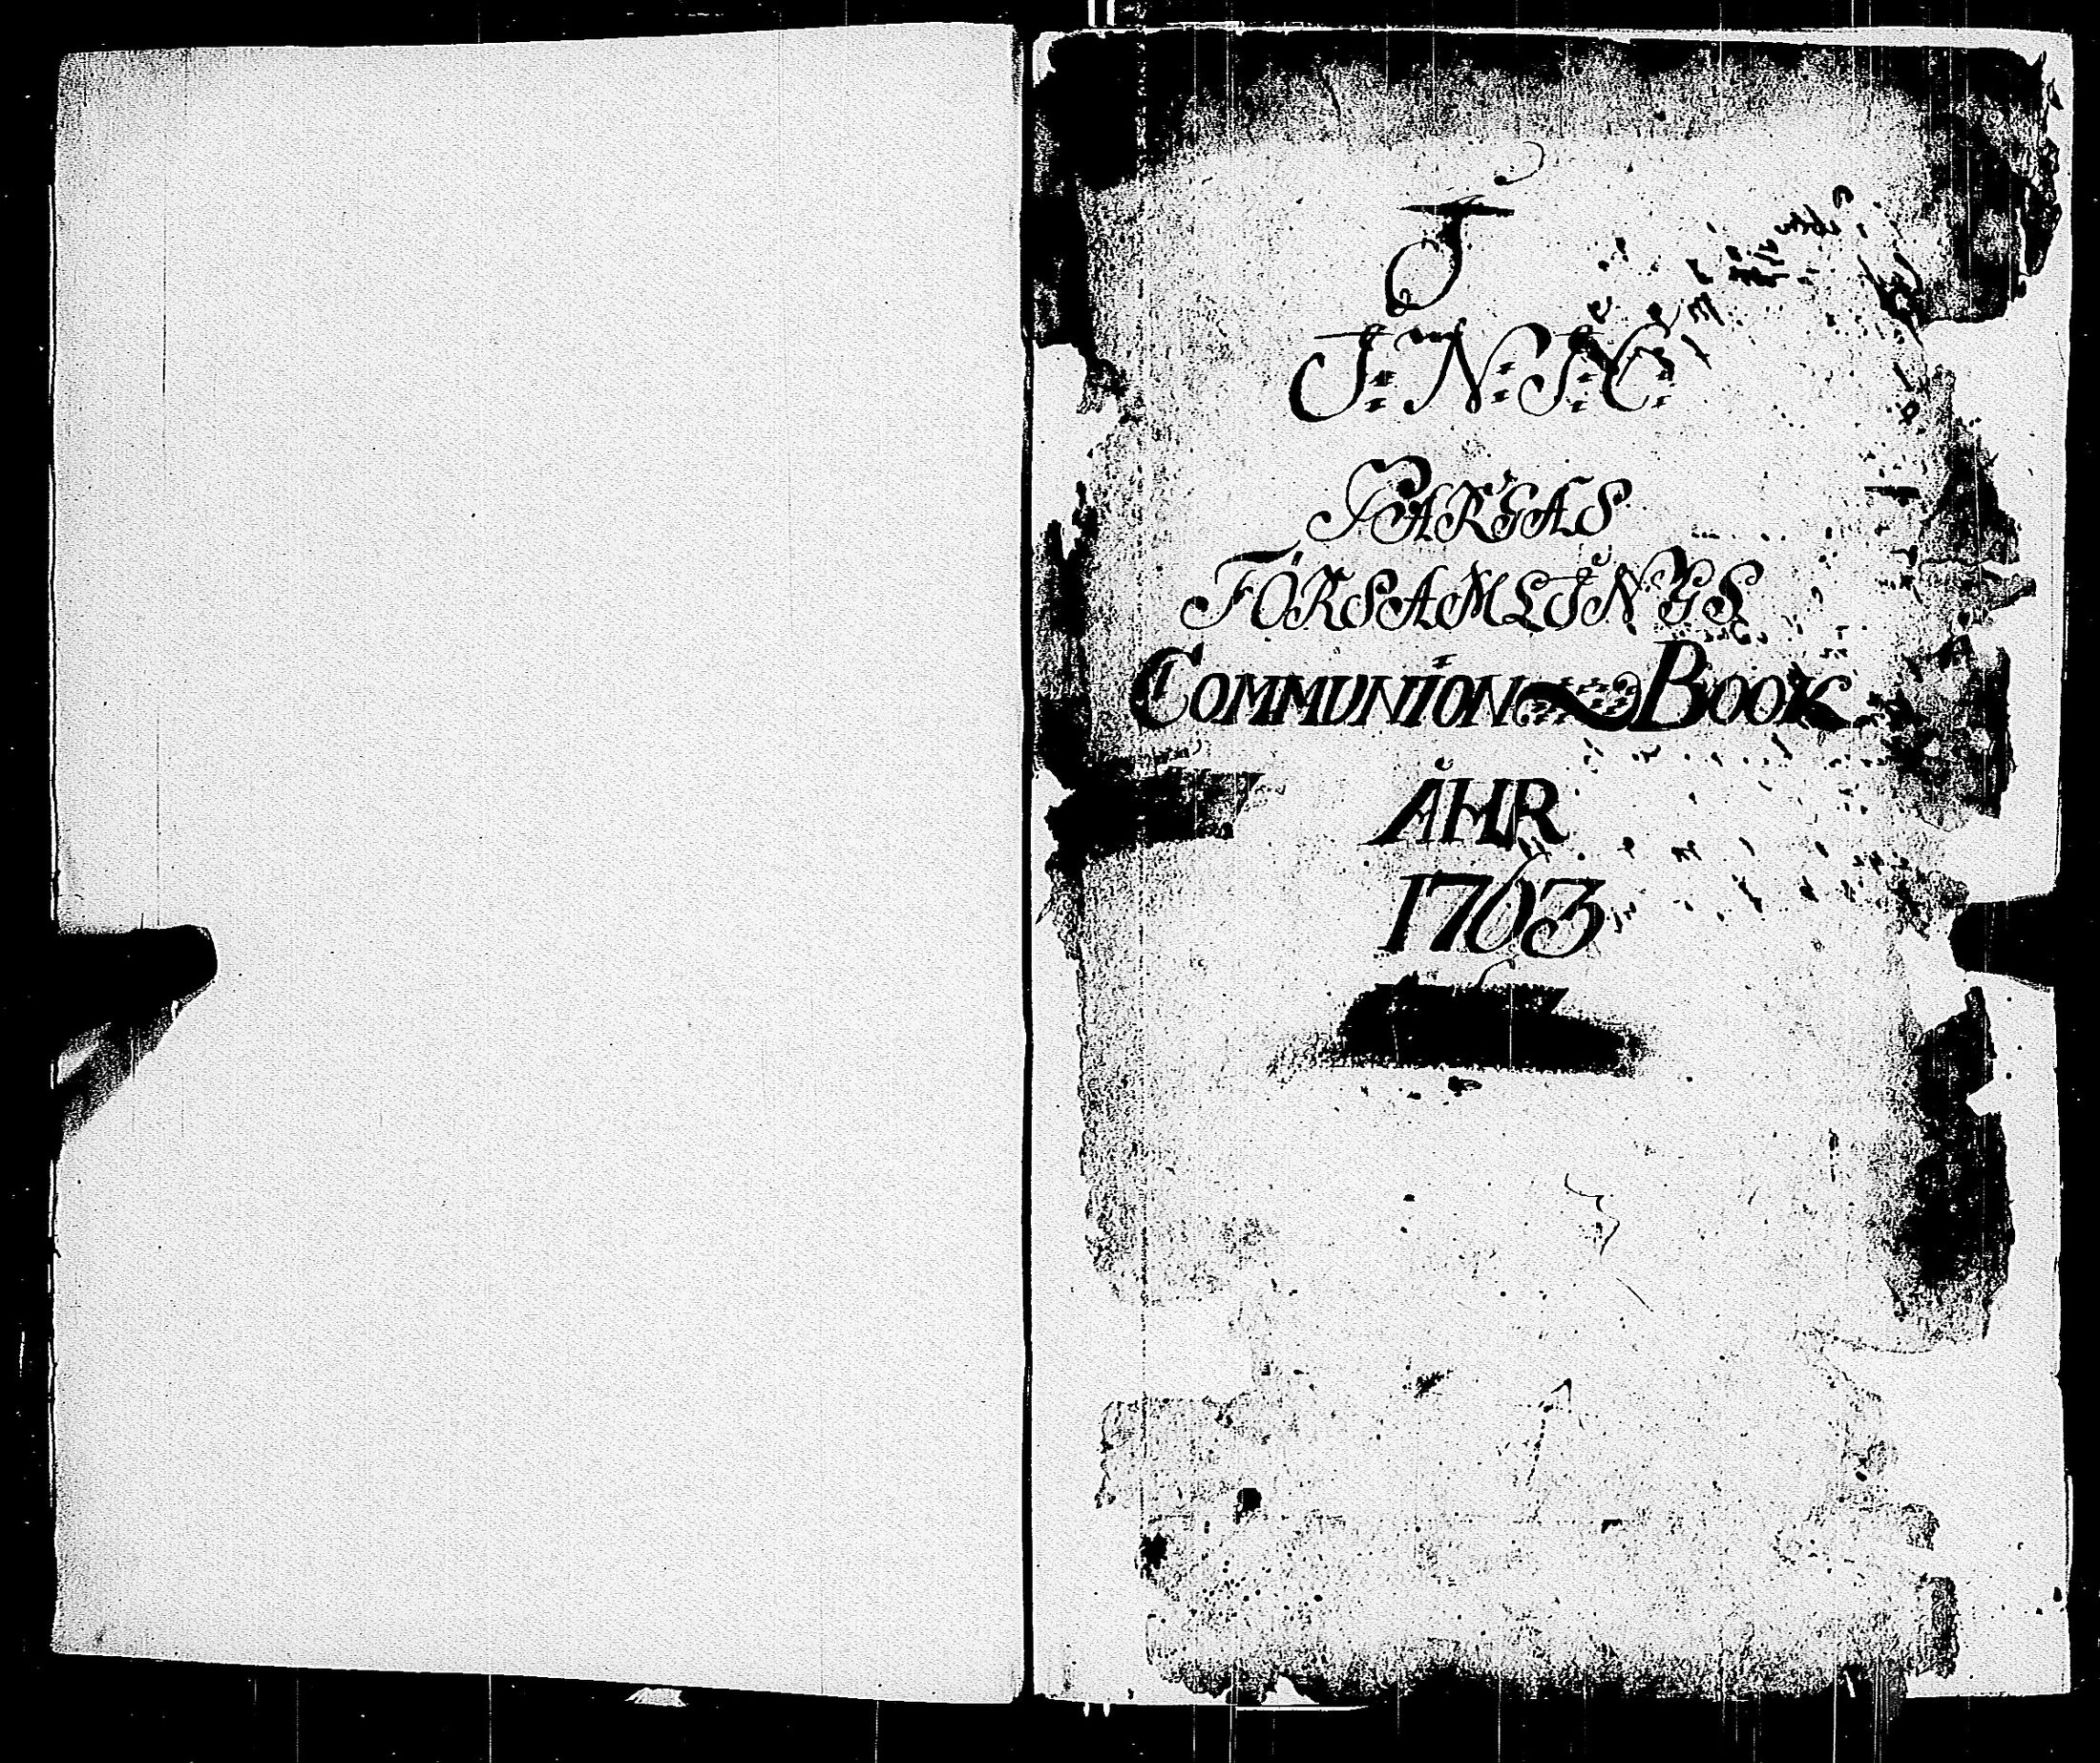 J
J: N: J: C:
PARGAS
FÖRSAMLINGS
COMMUNION BOOK
ÅHR
1703